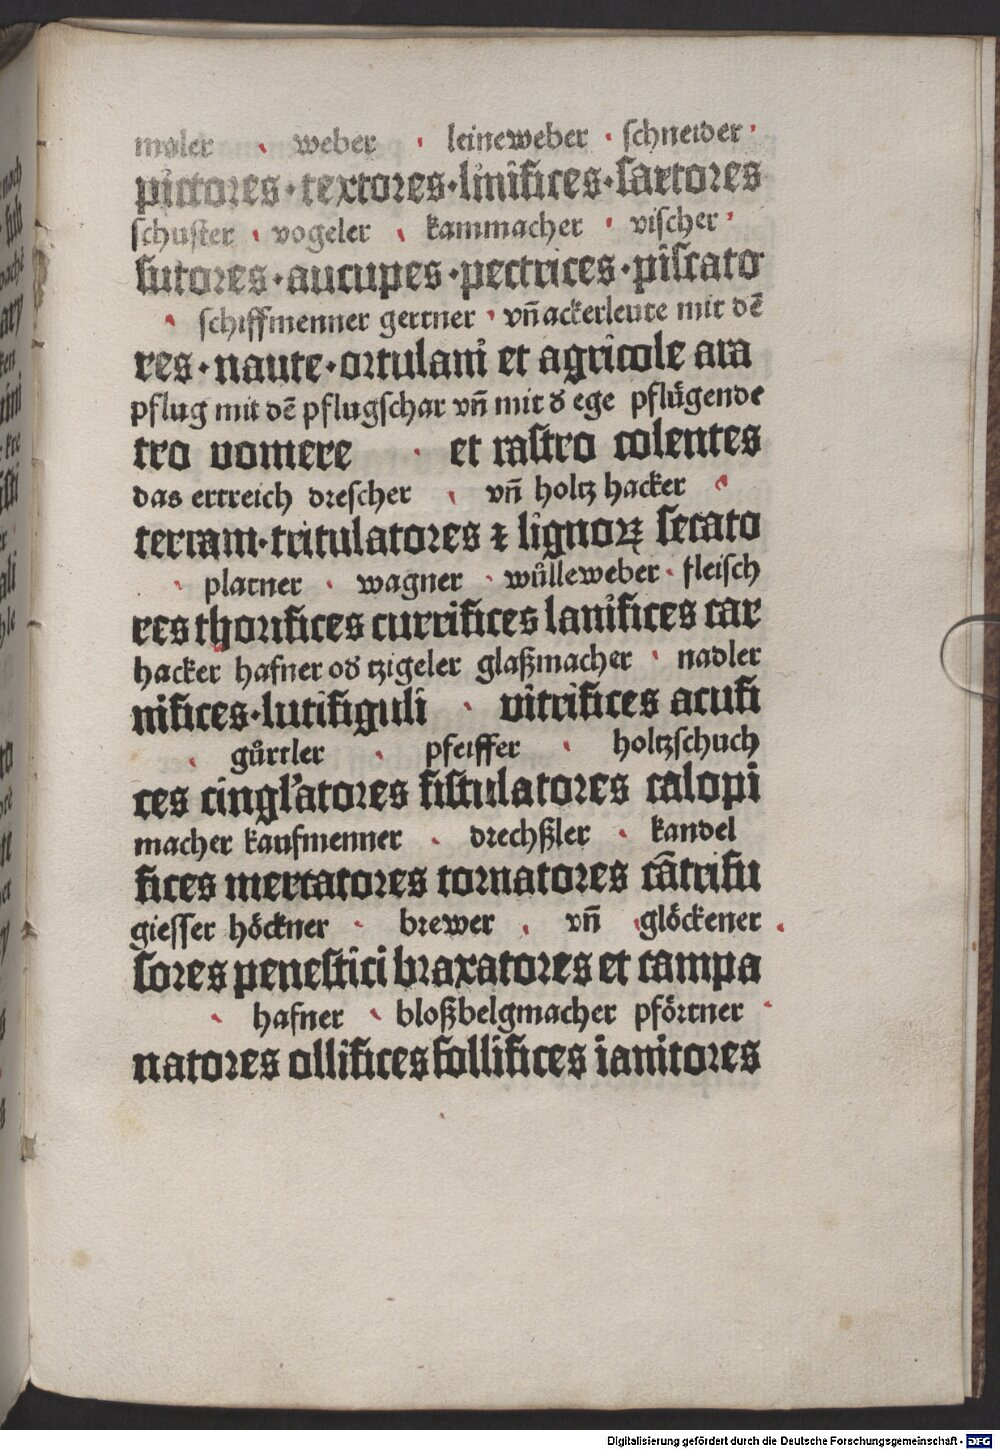 maler · weber · leineweber · schneider ·
pictores · textores · linifices · sartores
schuster · vogeler · kammacher · vischer ·
sutores · aucupes · pectrices · piscato
· schiffmenner gertner · vñ ackerleute mit dē
res · naute · ortulani et agricole ara
pflug mit dē pflugschar vñ mit d᷑ ege pflügende
tro vomere · et rastro colentes
das ertreich drescher · vñ holtz hacker ·
terram · tritulatores ⁊ lignoꝝ secato
· platner · wagner · wůlleweber · fleisch
res thorifices currifices lanifices car
hacker hafner od᷑ tzigeler glaßmacher · nadler
nifices · lutifiguli · vitrifices acufi
· gůrtler · pfeiffer · holtzschuch
ces cingl'atores fistulatores calopi
macher kaufmenner · drechßler · kandel
fices mercatores tornatores cātrifu
giesser höckner · brewer · vñ · glöckener ·
sores penestici braxatores et campa
· hafner · bloßbelgmacher pförtner ·
natores ollifices follifices ianitores
Digitalisierung gefördert durch die Deutsche Forschungsgemeinschaft - DFG